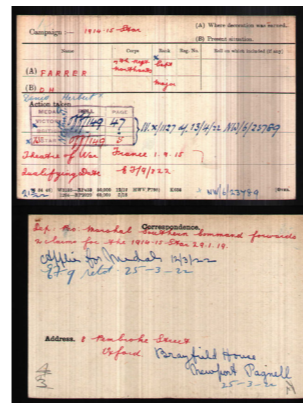 Campaign :— 1914-15 Star
(A) Where decoration was earned.
(B) Present situation.
Name Corps Rank Reg. No. Roll on which included (if any)
(A) FARRER 7th Northants Capt
(B) D H Major
Herbert
Action taken
MEDAL ROLL PAGE
VICTORY 47 N.X/1127 13/4/22 NW/6/23789
STAR
Theatre of War France 1.9.15
Qualifying Date
NW/6/23789
Correspondence.
Dep. Pro. Marshal Southern Command forwards
claim for the 1914-15 Star 29.1.19.
Applies for Medals 12/3/22
retd 25-3-22
Address. 8 Pembroke Street
Oxford Brayfield House
Newport Pagnell
25-3-22